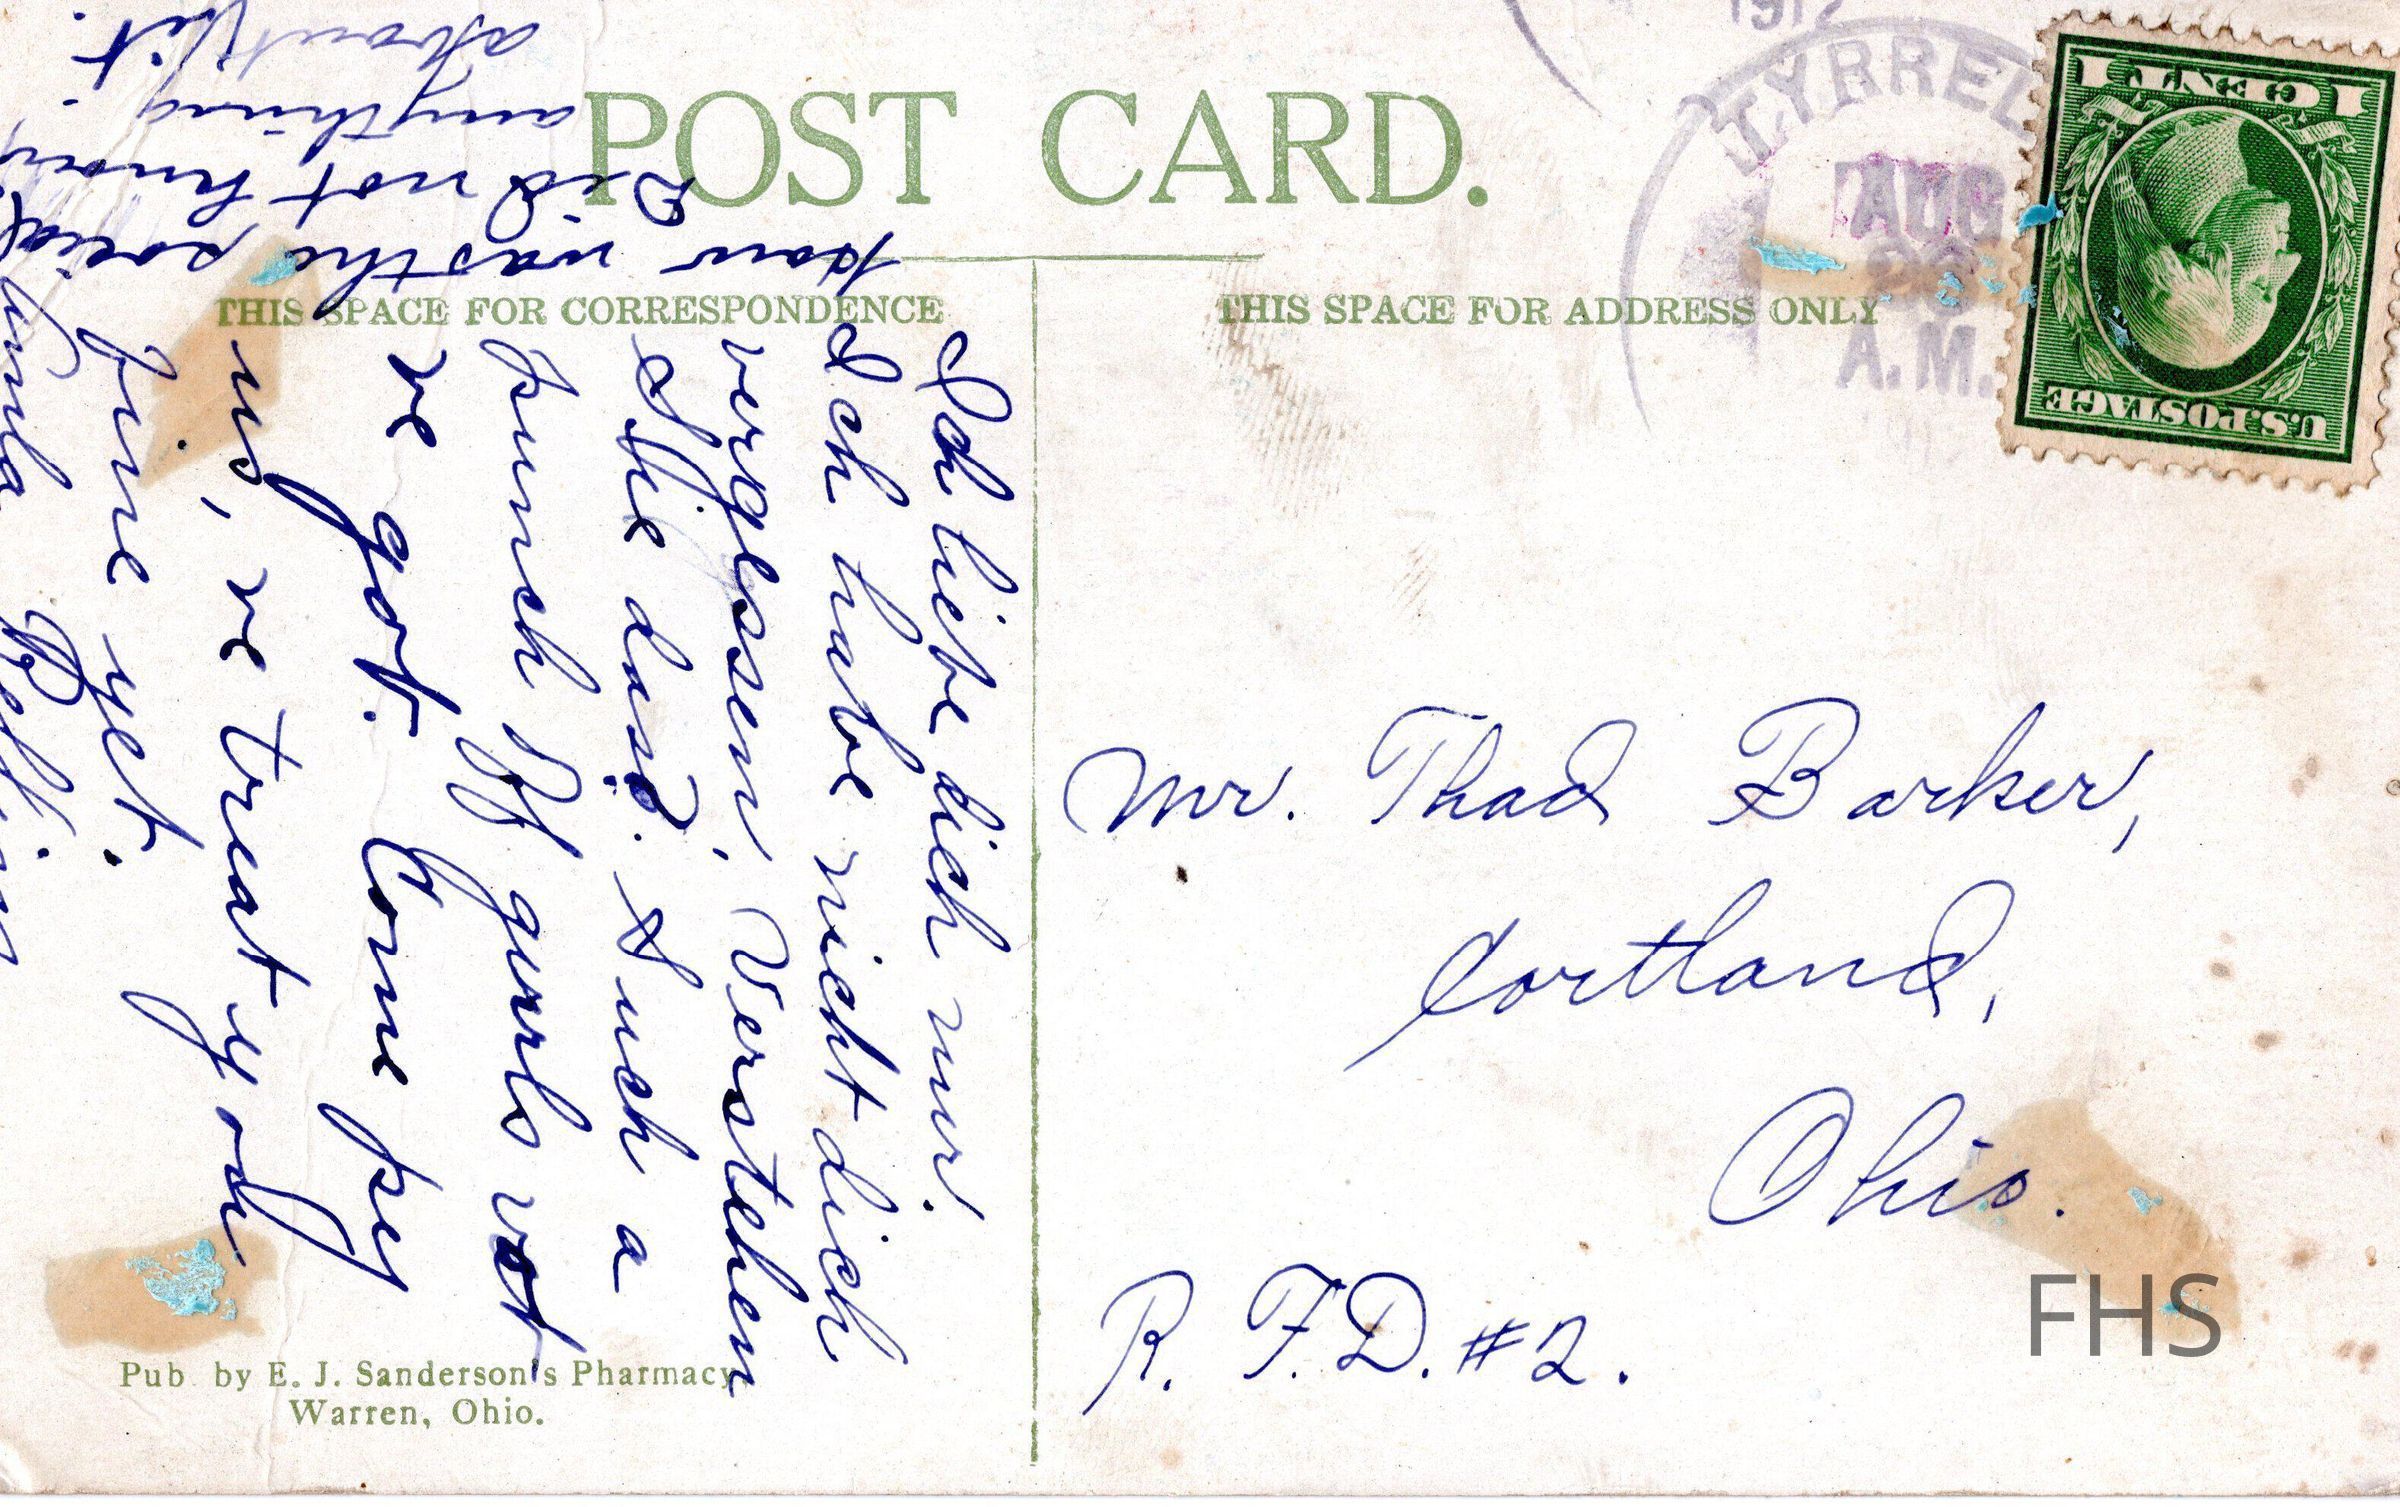 POST CARD.
THIS SPACE FOR CORRESPONDENCE
THIS SPACE FOR ADDRESS ONLY
1912
TYRREL
AUG
A.M.
1 CENT 1
U.S. POSTAGE
Ich liebe dich nur!
Ich habe nicht dich
vergessen. Verstehen
Sie das? Such a
punch gurls vot
ve got. Come py
us, ve treat you
fine yet.
How was the social
Did not know
anything
about it.
Mr. Thad Barker,
Cortland,
Ohio.
R. F. D. #2.
Pub by E. J. Sanderson's Pharmacy
Warren, Ohio.
FHS